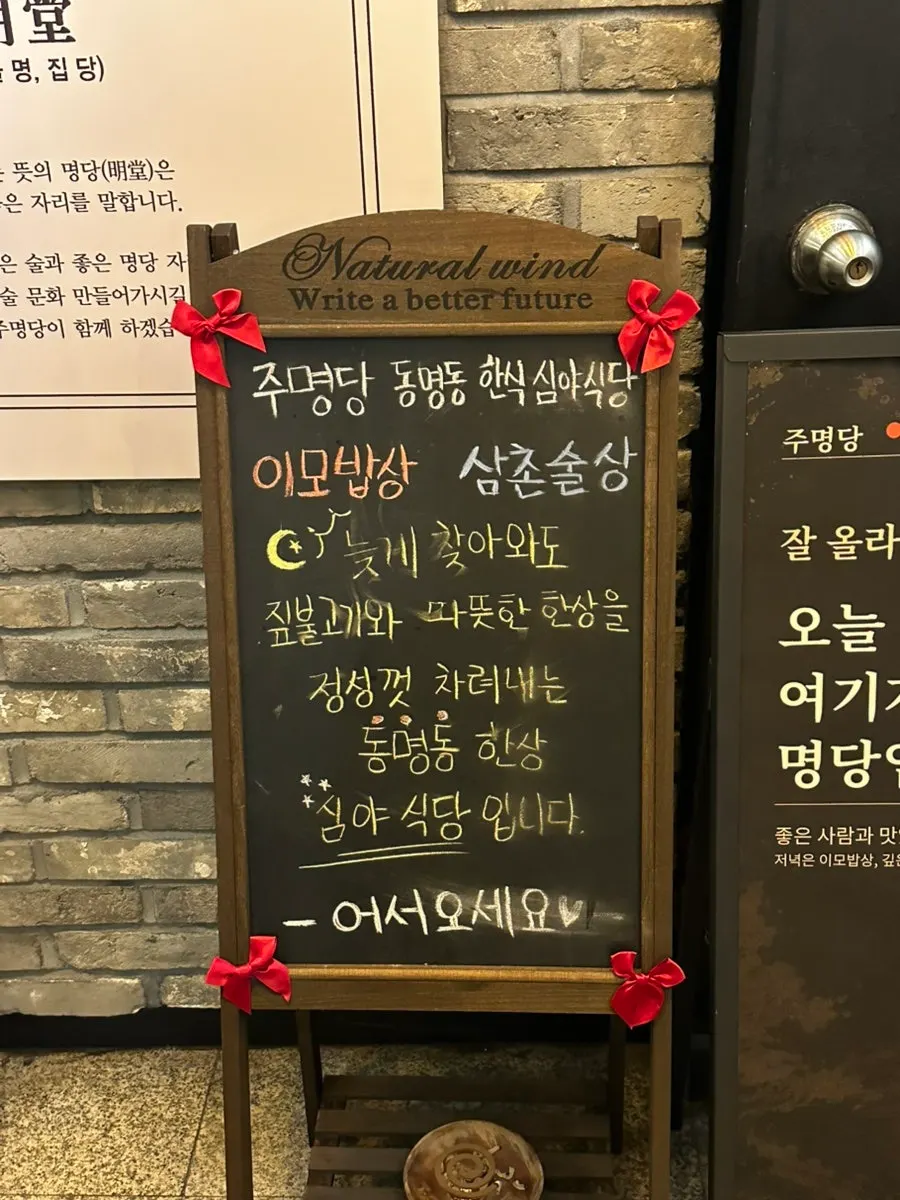 明堂
명, 집 당)
뜻의 명당(明堂)은
은 자리를 말합니다.
은 술과 좋은 명당 자
술 문화 만들어가시길
주명당이 함께 하겠습
Natural wind
Write a better future
주명당 동명동 한식 심야식당
이모밥상 삼촌술상
늦게 찾아와도
짚불고기와 따뜻한 한상을
정성껏 차려내는
동명동 한상
심야 식당 입니다.
- 어서오세요♡ -
주명당
잘 올라
오늘
여기가
명당인
좋은 사람과 맛있
저녁은 이모밥상, 깊은